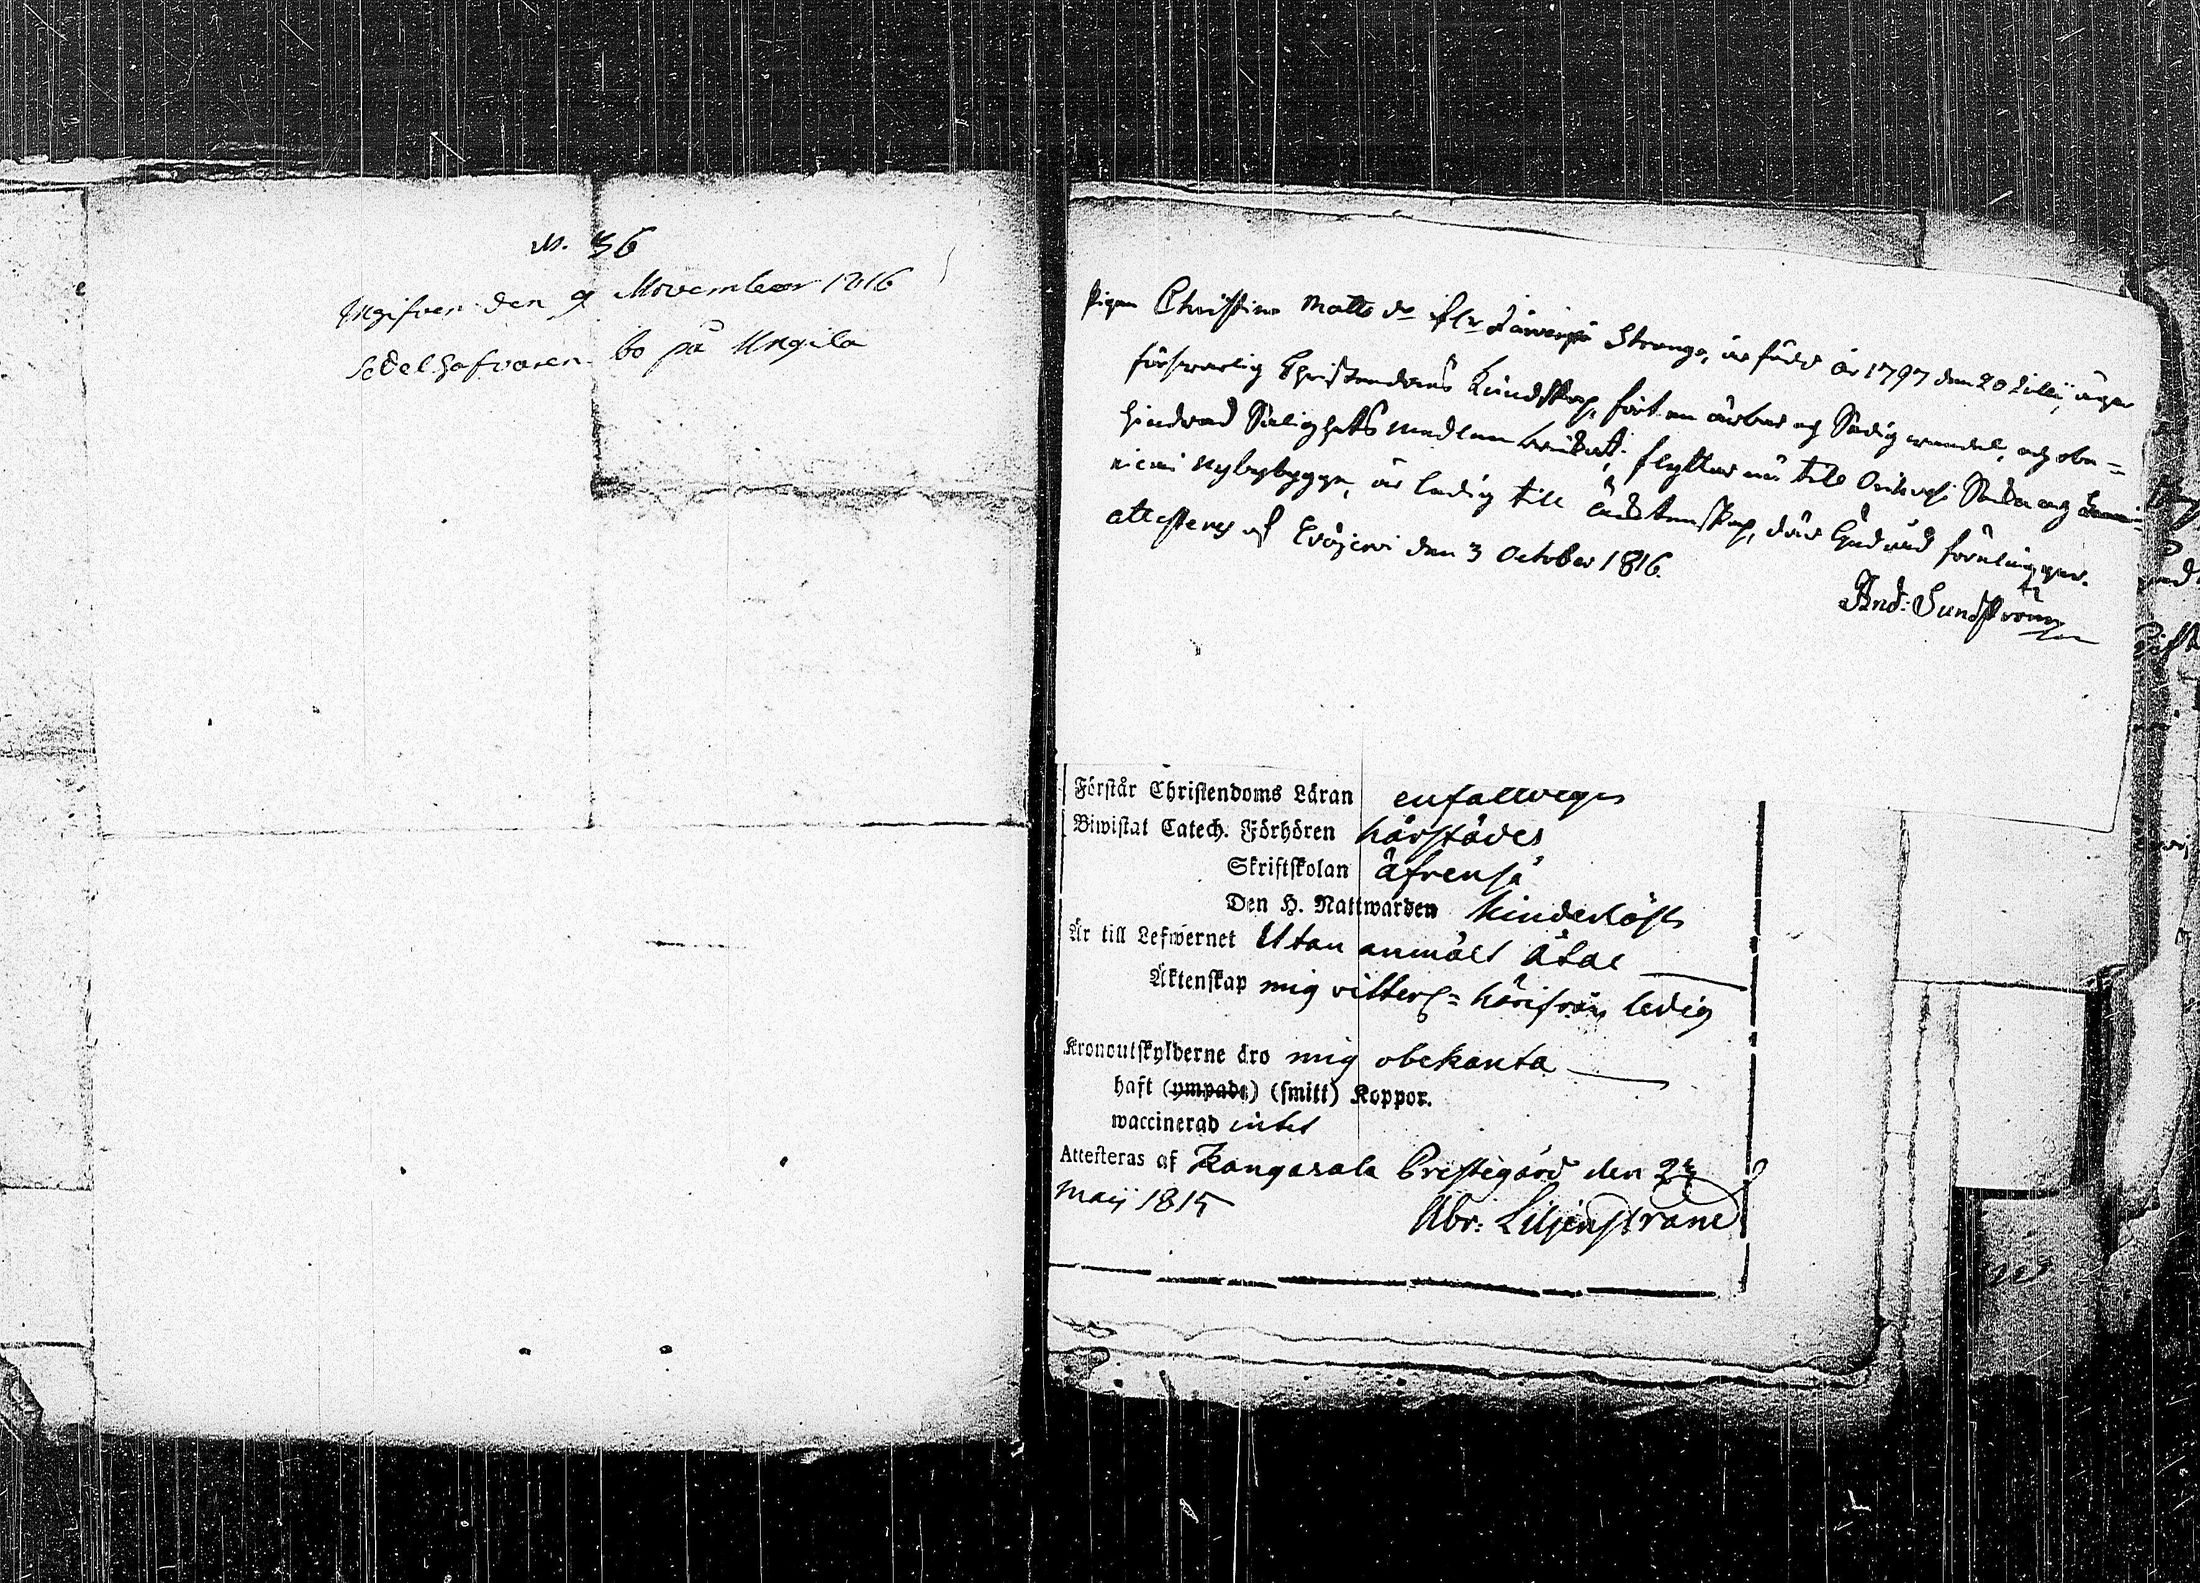 N. 36
Ingifven den 9 November 1816
Sedelhafvaren bo på Ungila
Pigan Christina Matts dr från Strange, är född år 1797 den 20 Julij, äger
försvarlig Christendoms Kundskap, fört en ärbar och Sedig wandel, och obe=
hindrad Salighets medlem brukat; flyttar nu till Orihvesi Socken och
niemi Nybybygge, är ledig till äcktenskap, där Gud råd förelägger.
attesteras af Eräjervi den 3 October 1816.
And: Sundström
Förstår Christendoms Läran enfalleveges
Biwistat Catech. Förhören härstädes
Skriftskolan äfvenså
Den H. Nattwarden hinderlöst
Är till Lefwernet Utan anmält åtal
Äktenskap mig vitterl= härifrån ledig
Kronoutskylderne äro mig obekanta
haft (ympade) (smitt) Koppor.
waccinerad intet
Attesteras af Kangasala Prestegård den 23
Maij 1815
Abr: Liljenstrand